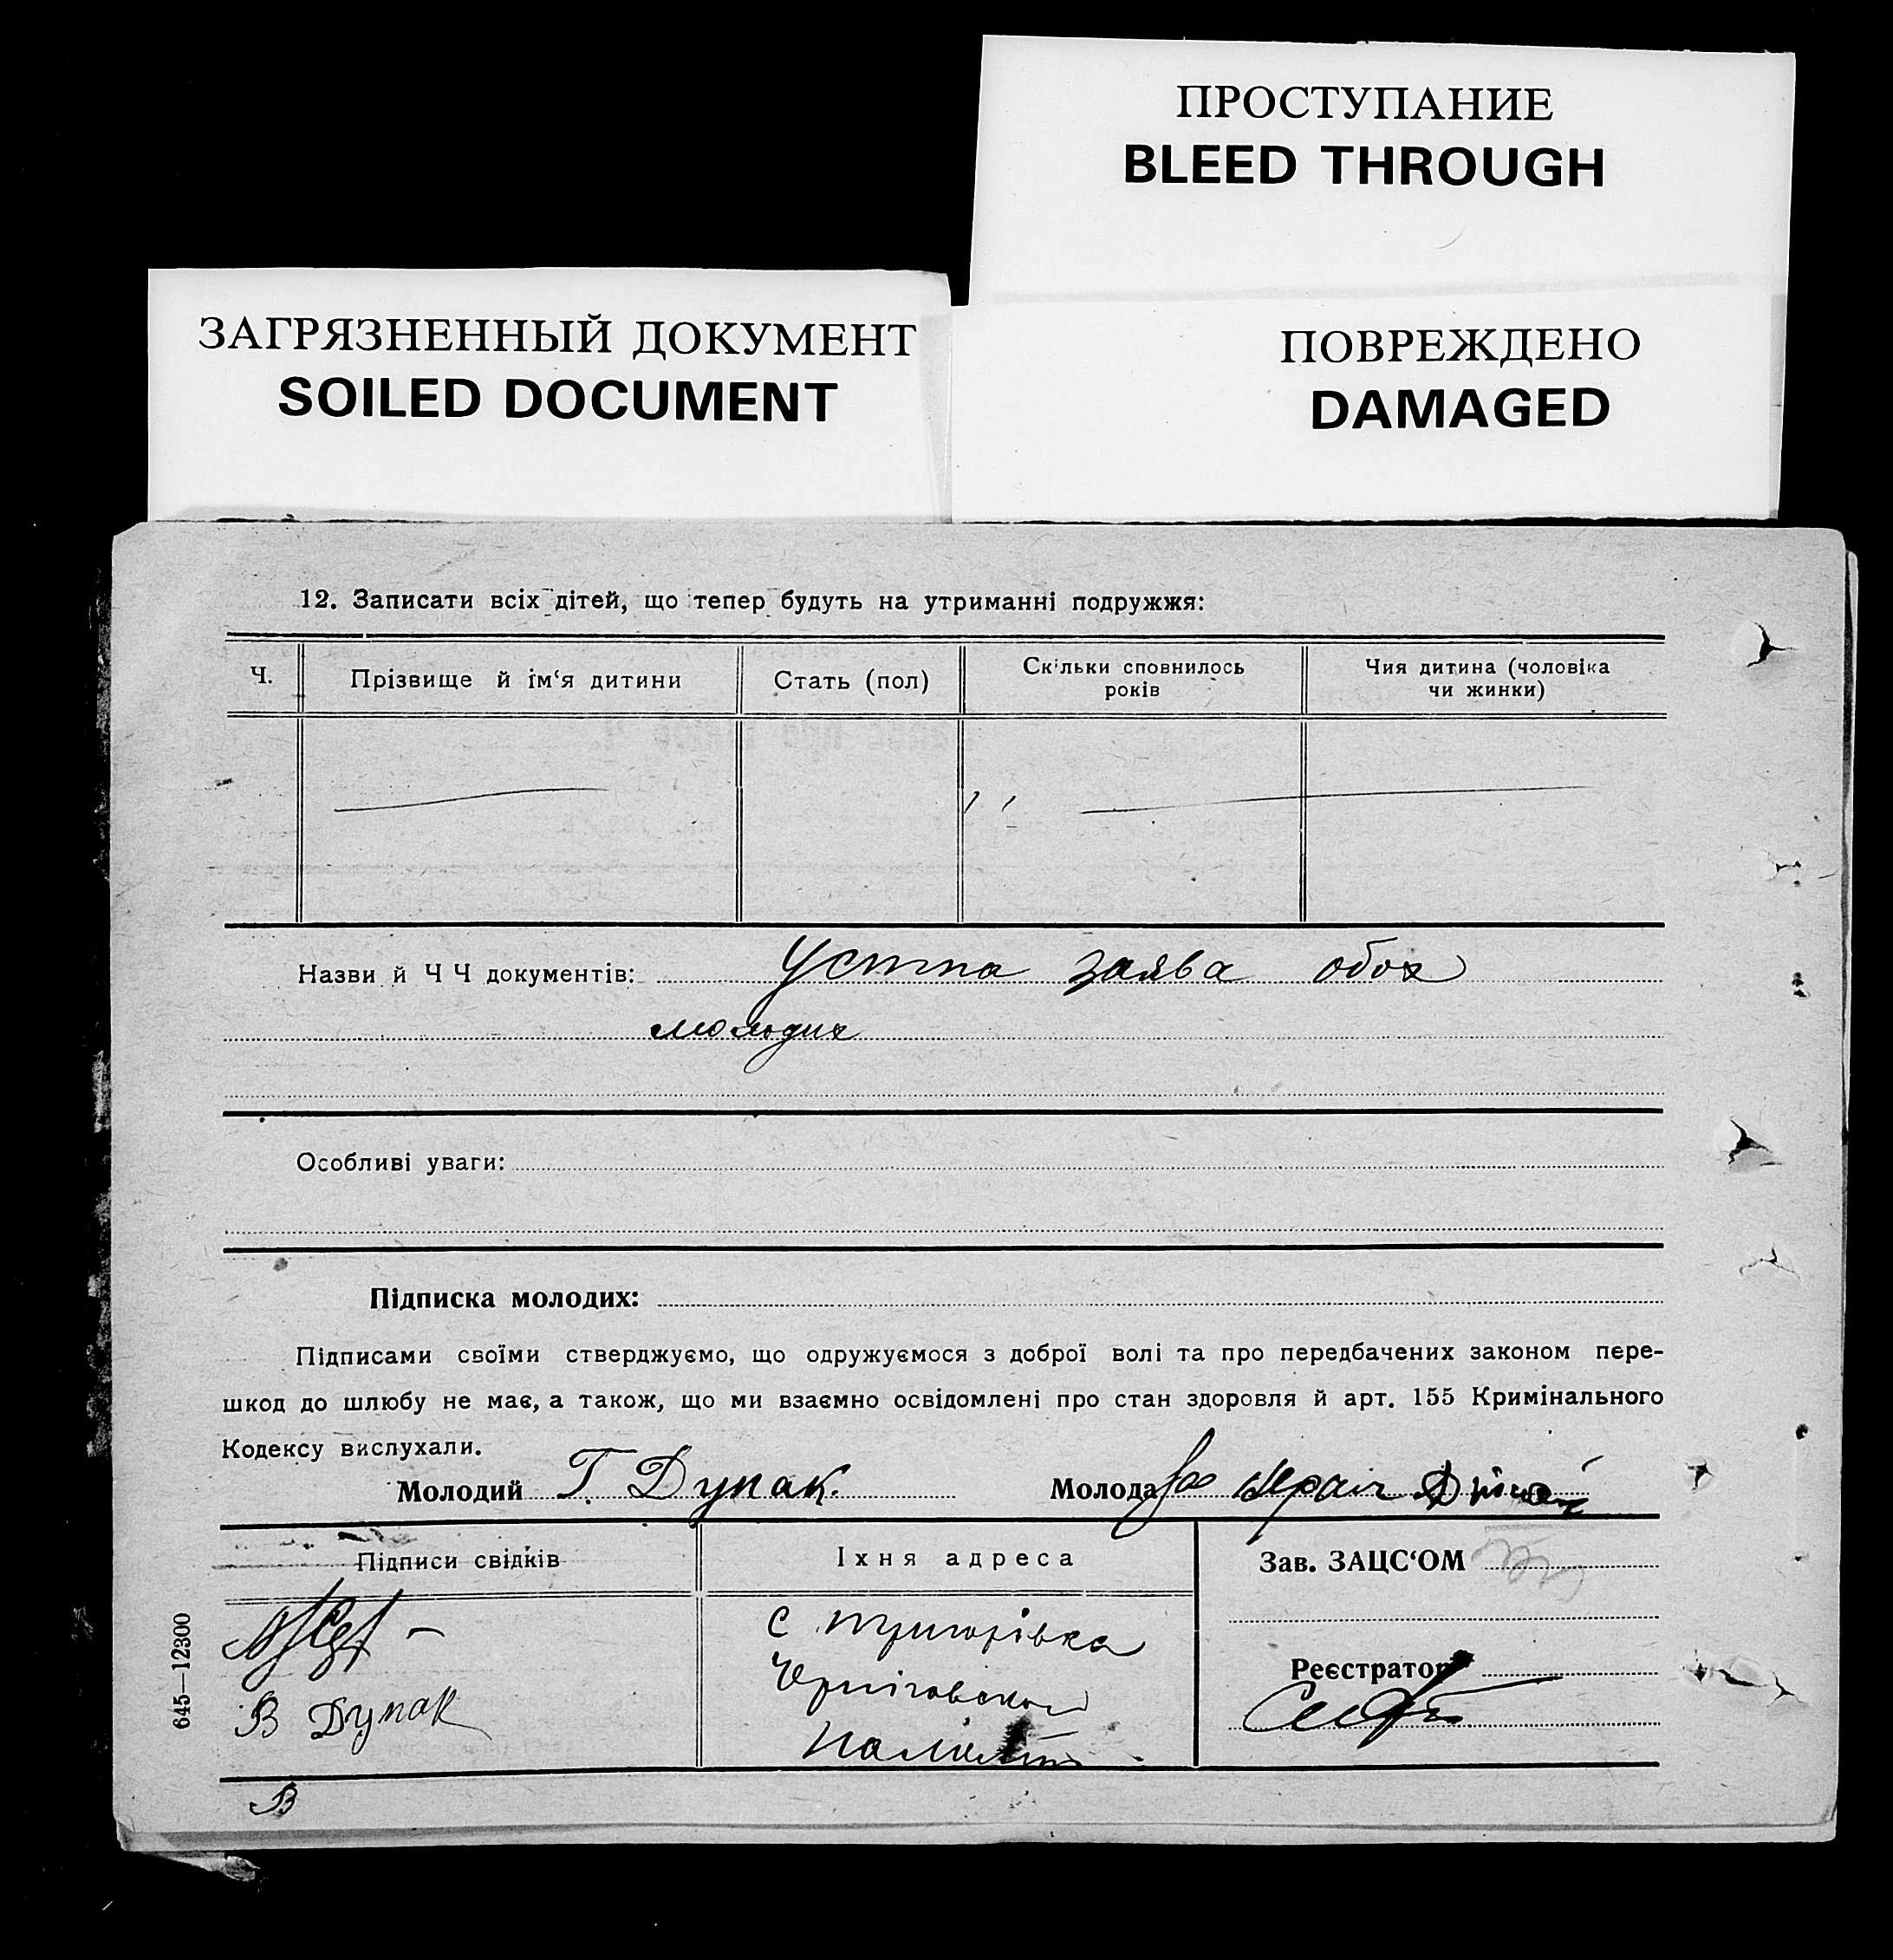 ПРОСТУПАНИЕ
BLEED THROUGH
ЗАГРЯЗНЕННЫЙ ДОКУМЕНТ
SOILED DOCUMENT
ПОВРЕЖДЕНО
DAMAGED
12. Записати всіх дітей, що тепер будуть на утриманні подружжя:
Ч.
Прізвище й ім‘я дитини
Стать (пол)
Скільки сповнилось
років
Чия дитина (чоловіка
чи жинки)
Назви й Ч Ч документів: Устна заява обох
молодих
Особливі уваги:
Підписка молодих:
Підписами своїми стверджуємо, що одружуємося з доброї волі та про передбачених законом пере-
шкод до шлюбу не має, а також, що ми взаємно освідомлені про стан здоровля й арт. 155 Кримінального
Кодексу вислухали.
Молодий Г. Дупак.
Молода
Підписи свідків
Їхня адреса
Зав. ЗАЦС‘ОМ
В Дупак
с
Реєстратор
645—12300
В